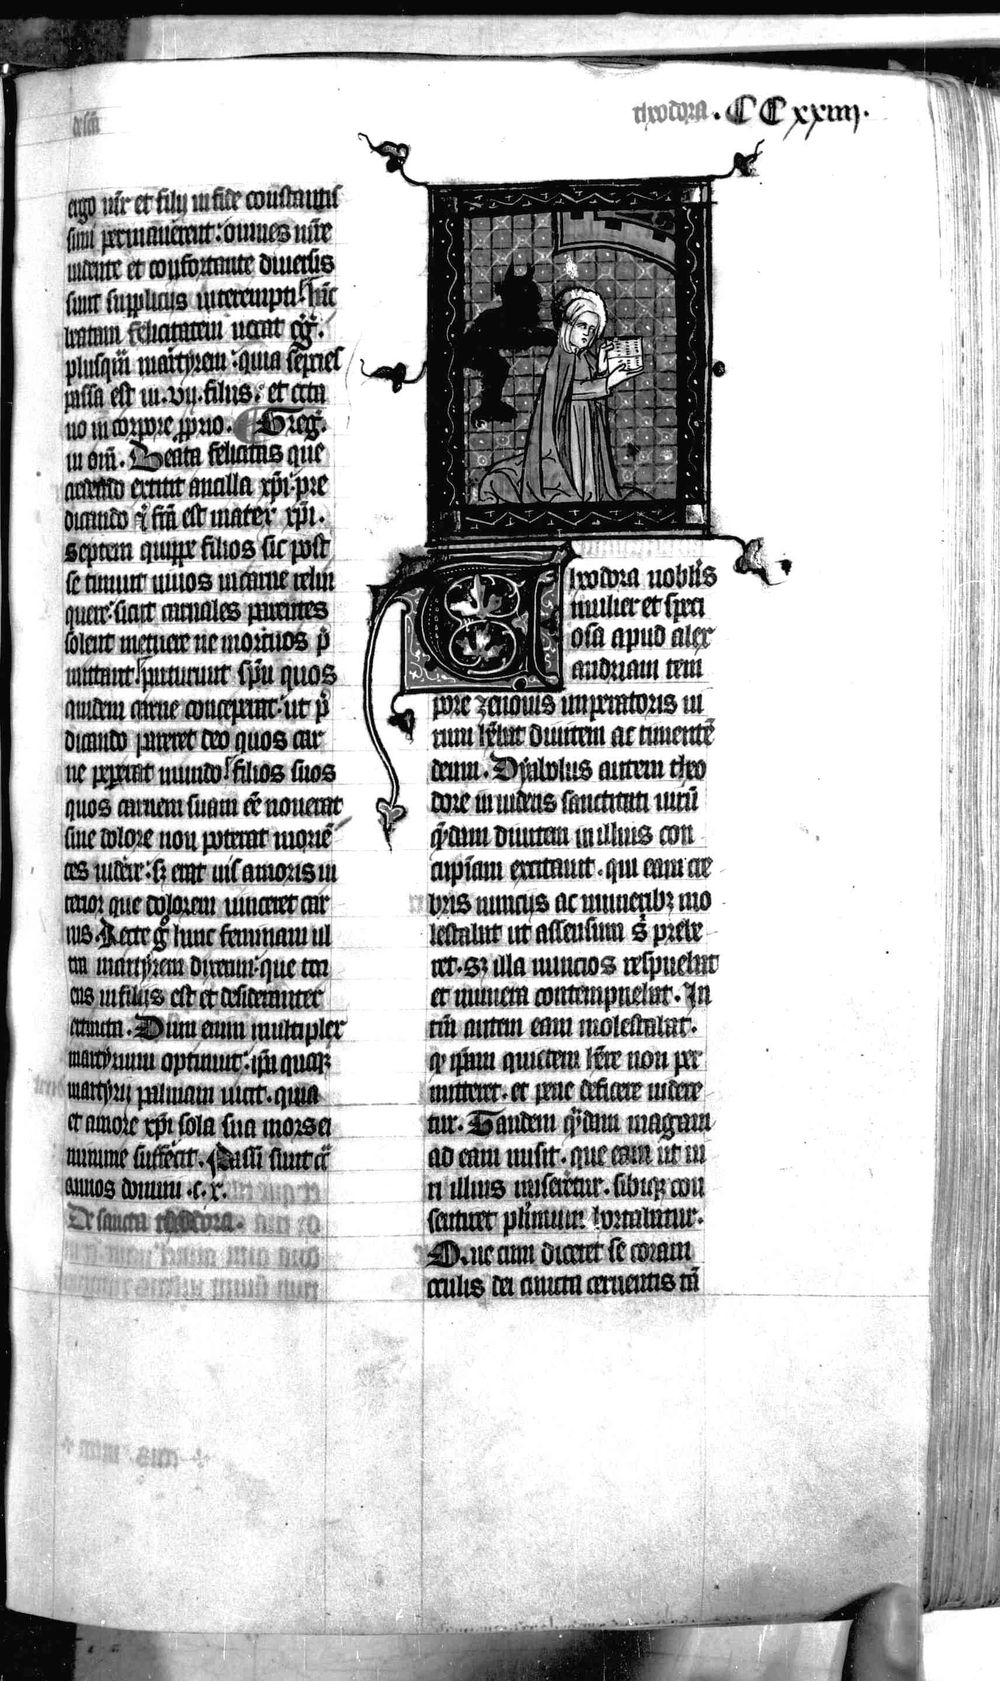 de sc̄a
theodora . CCxxiiij.
ergo mr̄ et filij in fide constantis
simi permanerent : omnes mr̄e
uidente et confortante diuersis
sunt supplicijs interempti. hāc
beatam felicitatem uocat gg̃.
plusqm̄ martyrem : quia sepcies
passa est in .vij. filijs : et octa
uo in corpore p̄prio. Greg̃.
in om̄. Beata felicitas que
credendo extitit ancilla xp̄i . pre
dicando q̄ fc̄a est mater xp̄i.
septem quippe filios sic post
se timuit uiuos in carne relin
quere : sicut carnales parentes
solent metuere ne mortuos p̄
mittant. parturiuit sp̄u quos
quidem carne conceperat . ut p̄
dicando pareret deo quos car
ne pepererat mundo. filios suos
quos carnem suam eē nouerat
sine dolore non poterat moriē
tes uidere : sꝫ erat uis amoris in
terior que dolorem uinceret car
nis. Recte g̊ hanc feminam ul
tra martyrem dixerim . que tot
ens in filijs est et desideranter
extincta. Dum enim multiplex
martyrium optinuit : ip̄a quoqꝫ
martyrij palmam uicit . quia
et amore xp̄i sola sua mors ei
minime suffecit. Passi sunt c̄
annos domini .c.x.
De sancta theodora.
Theodora nobilis
mulier et speci
osa apud alex
andriam tem
pore zenonis imperatoris ui
rum hēbat diuitem ac timentē
deum. Dyabolus autem theo
dore inuidens sanctitati uirū
q̄dam diuitem in illius con
cupiam excitauit . qui eam cre
bris nuncijs ac muneribꝫ mo
lestabat ut assensum s̄ prebe
ret. Sꝫ illa nuncios respuebat
et munera contempnebat. In
tm̄ autem eam molestabat.
qꝫ ip̄am quietem hr̄e non per
mitteret . et pene deficere uidere
tur. Tandem q̄dam magam
ad eam misit . que eam ut ui
ri illius miseretur . sibiqꝫ con
sentiret plurimum hortabatur.
Que cum diceret se coram
oculis dei cuncta cernentis tm̄